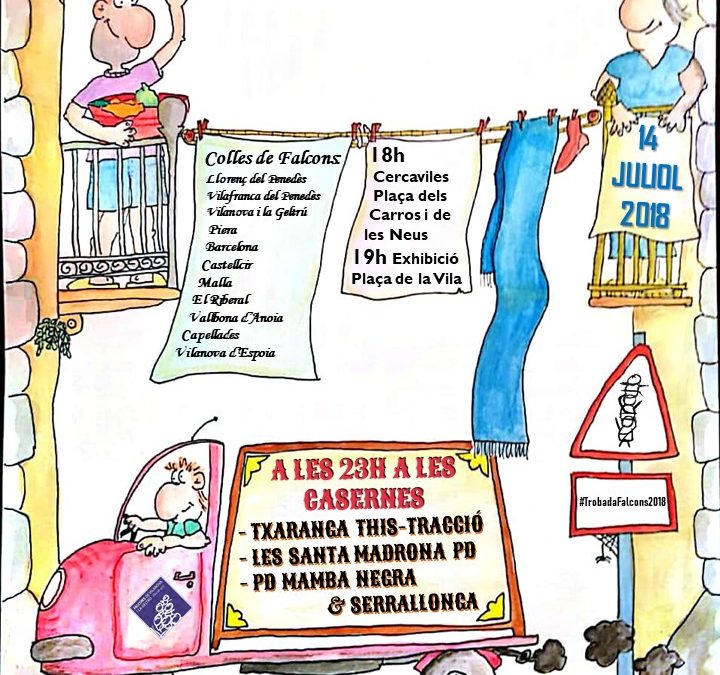 Colles de Falcons
Llorenç del Penedès
Vilafranca del Penedès
Vilanova i la Geltrú
Piera
Barcelona
Castellcir
Malla
El Riberal
Vallbona d'Anoia
Capellades
Vilanova d'Espoia
18h
Cercaviles
Plaça dels
Carros i de
les Neus
19h Exhibició
Plaça de la Vila
14
JULIOL
2018
#TrobadaFalcons2018
A LES 23H A LES
CASERNES
- TXARANGA THIS-TRACCIÓ
- LES SANTA MADRONA PD
- PD MAMBA NEGRA
& SERRALLONGA